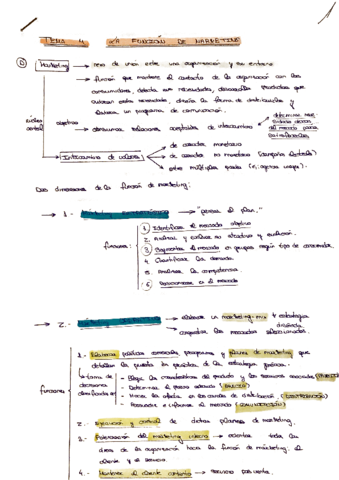 TEMA 4 LA FUNCIÓN DE MARKETING
Marketing → nexo de unión entre una organización y su entorno
→ función que mantiene el contacto de la organización con los
consumidores, detecta sus necesidades, desarrolla productos que
cubran estas necesidades, diseña la forma de distribuirlos y
elabora un programa de comunicación.
núcleo central
objetivo
→ desarrollar relaciones de intercambio
Intercambio de valores
→ de carácter monetario
→ de carácter no monetario
→ entre múltiples partes
Dos dimensiones de la función de marketing:
→ 1.- → "pensar el plan."
funciones:
1. Identificar el mercado objetivo
2. Analizar y
3. Segmentar el mercado en grupos según tipo de consumidor
4. Cuantificar la demanda
5. Analizar la competencia
6. Posicionarse en el mercado
→ 2.- → elaborar un marketing-mix + estrategia diseñada
→ conquistar los mercados seleccionados.
funciones
1.- Elaborar políticas comerciales, programas y planes de marketing que
detallen la puesta en práctica de la estrategia
la toma de decisiones
- Elegir las características del producto y los servicios asociados (PRODUCTO)
- Determinar el precio adecuado (PRECIO)
- los canales de distribución (DISTRIBUCIÓN)
- Promover e informar al mercado (COMUNICACIÓN)
2.- Ejecución y control de dichos planes de marketing.
3.- Potenciación del marketing interno → orientar todas las
áreas de la organización hacia la función de marketing: el
cliente y el servicio
4.- Mantener al cliente contento → servicio post venta.